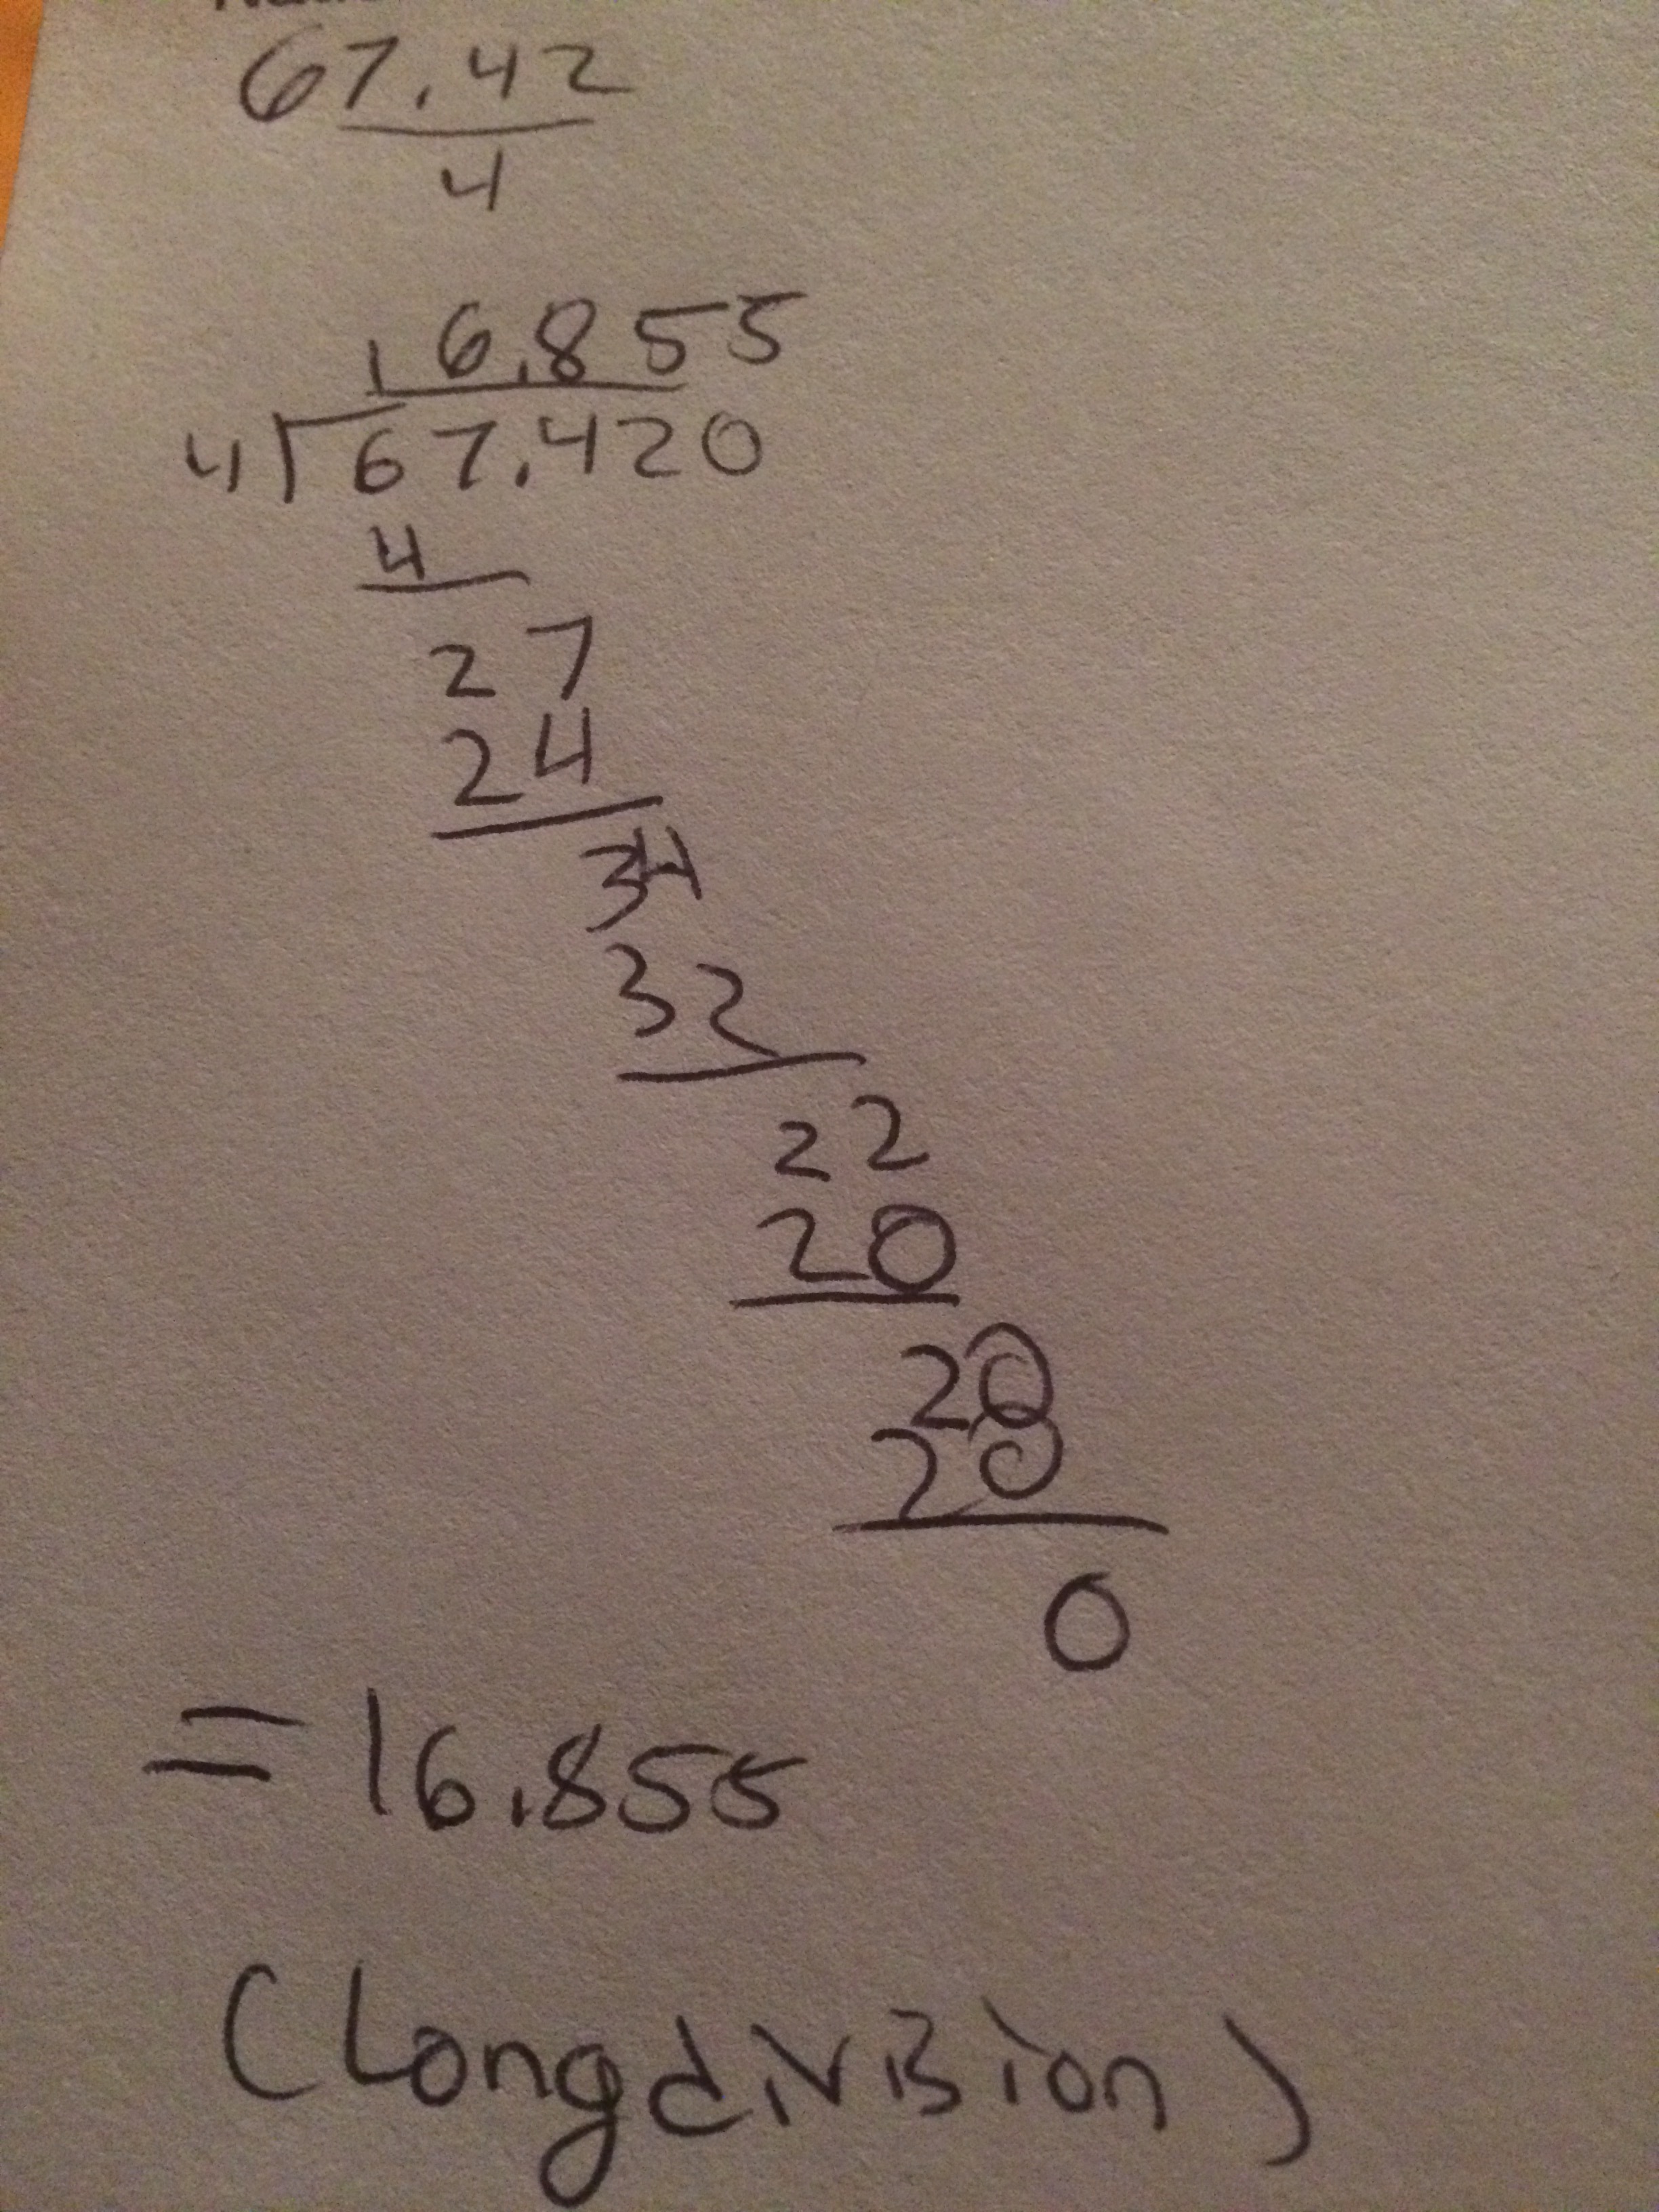 67.42
4
16.855
4 67.420
4
27
24
34
32
22
20
20
20
0
=16.855
(Long division)